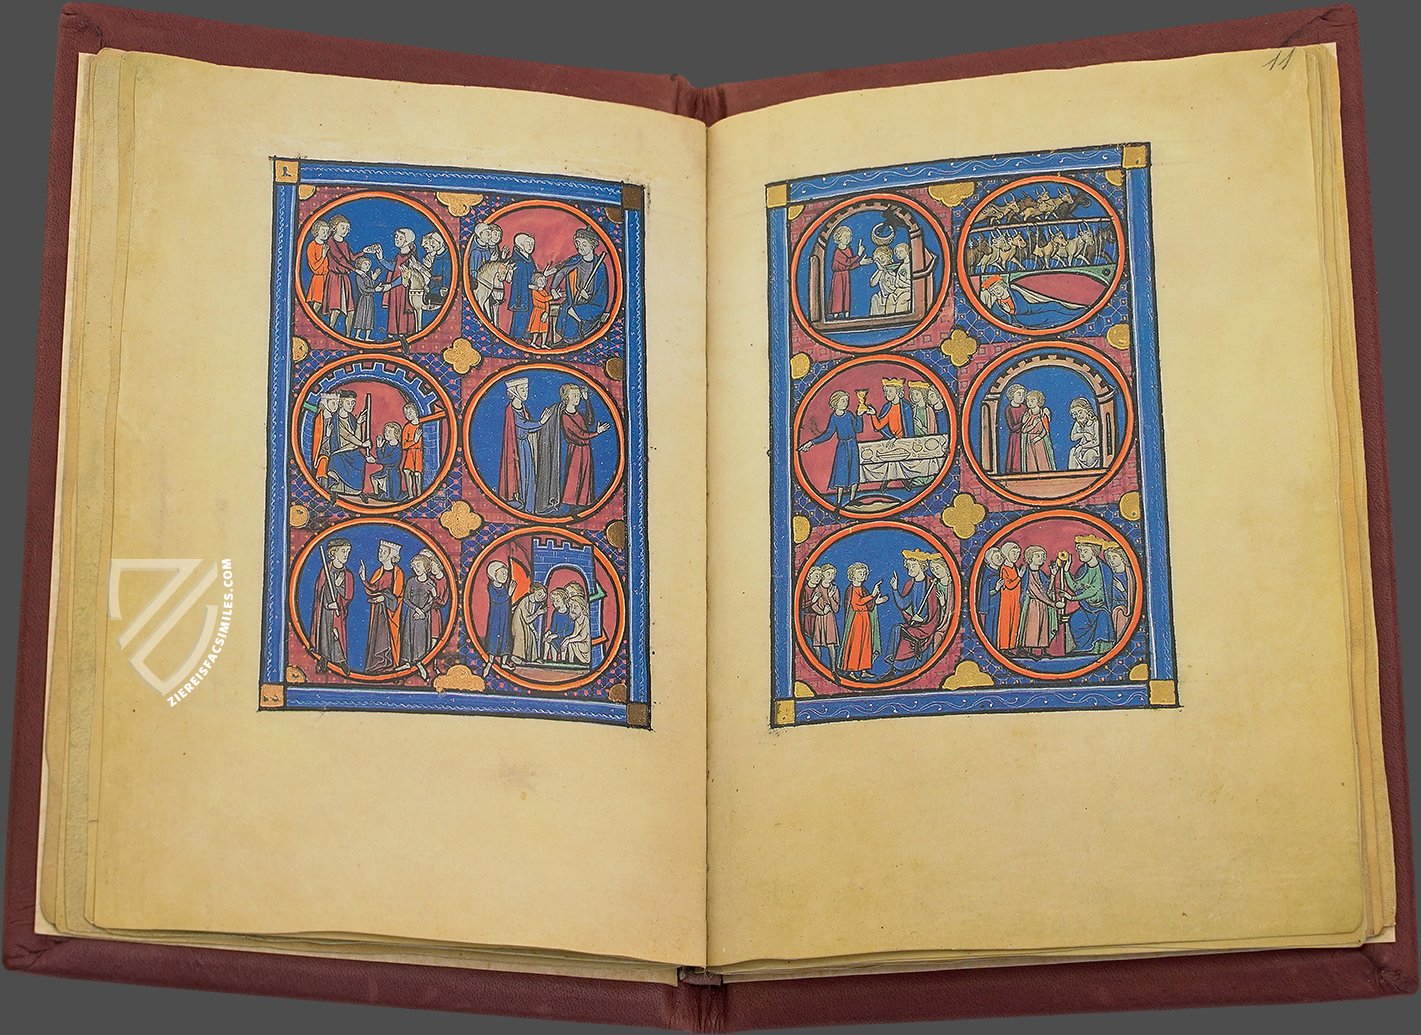 11
ZIEREISFACSIMILES.COM